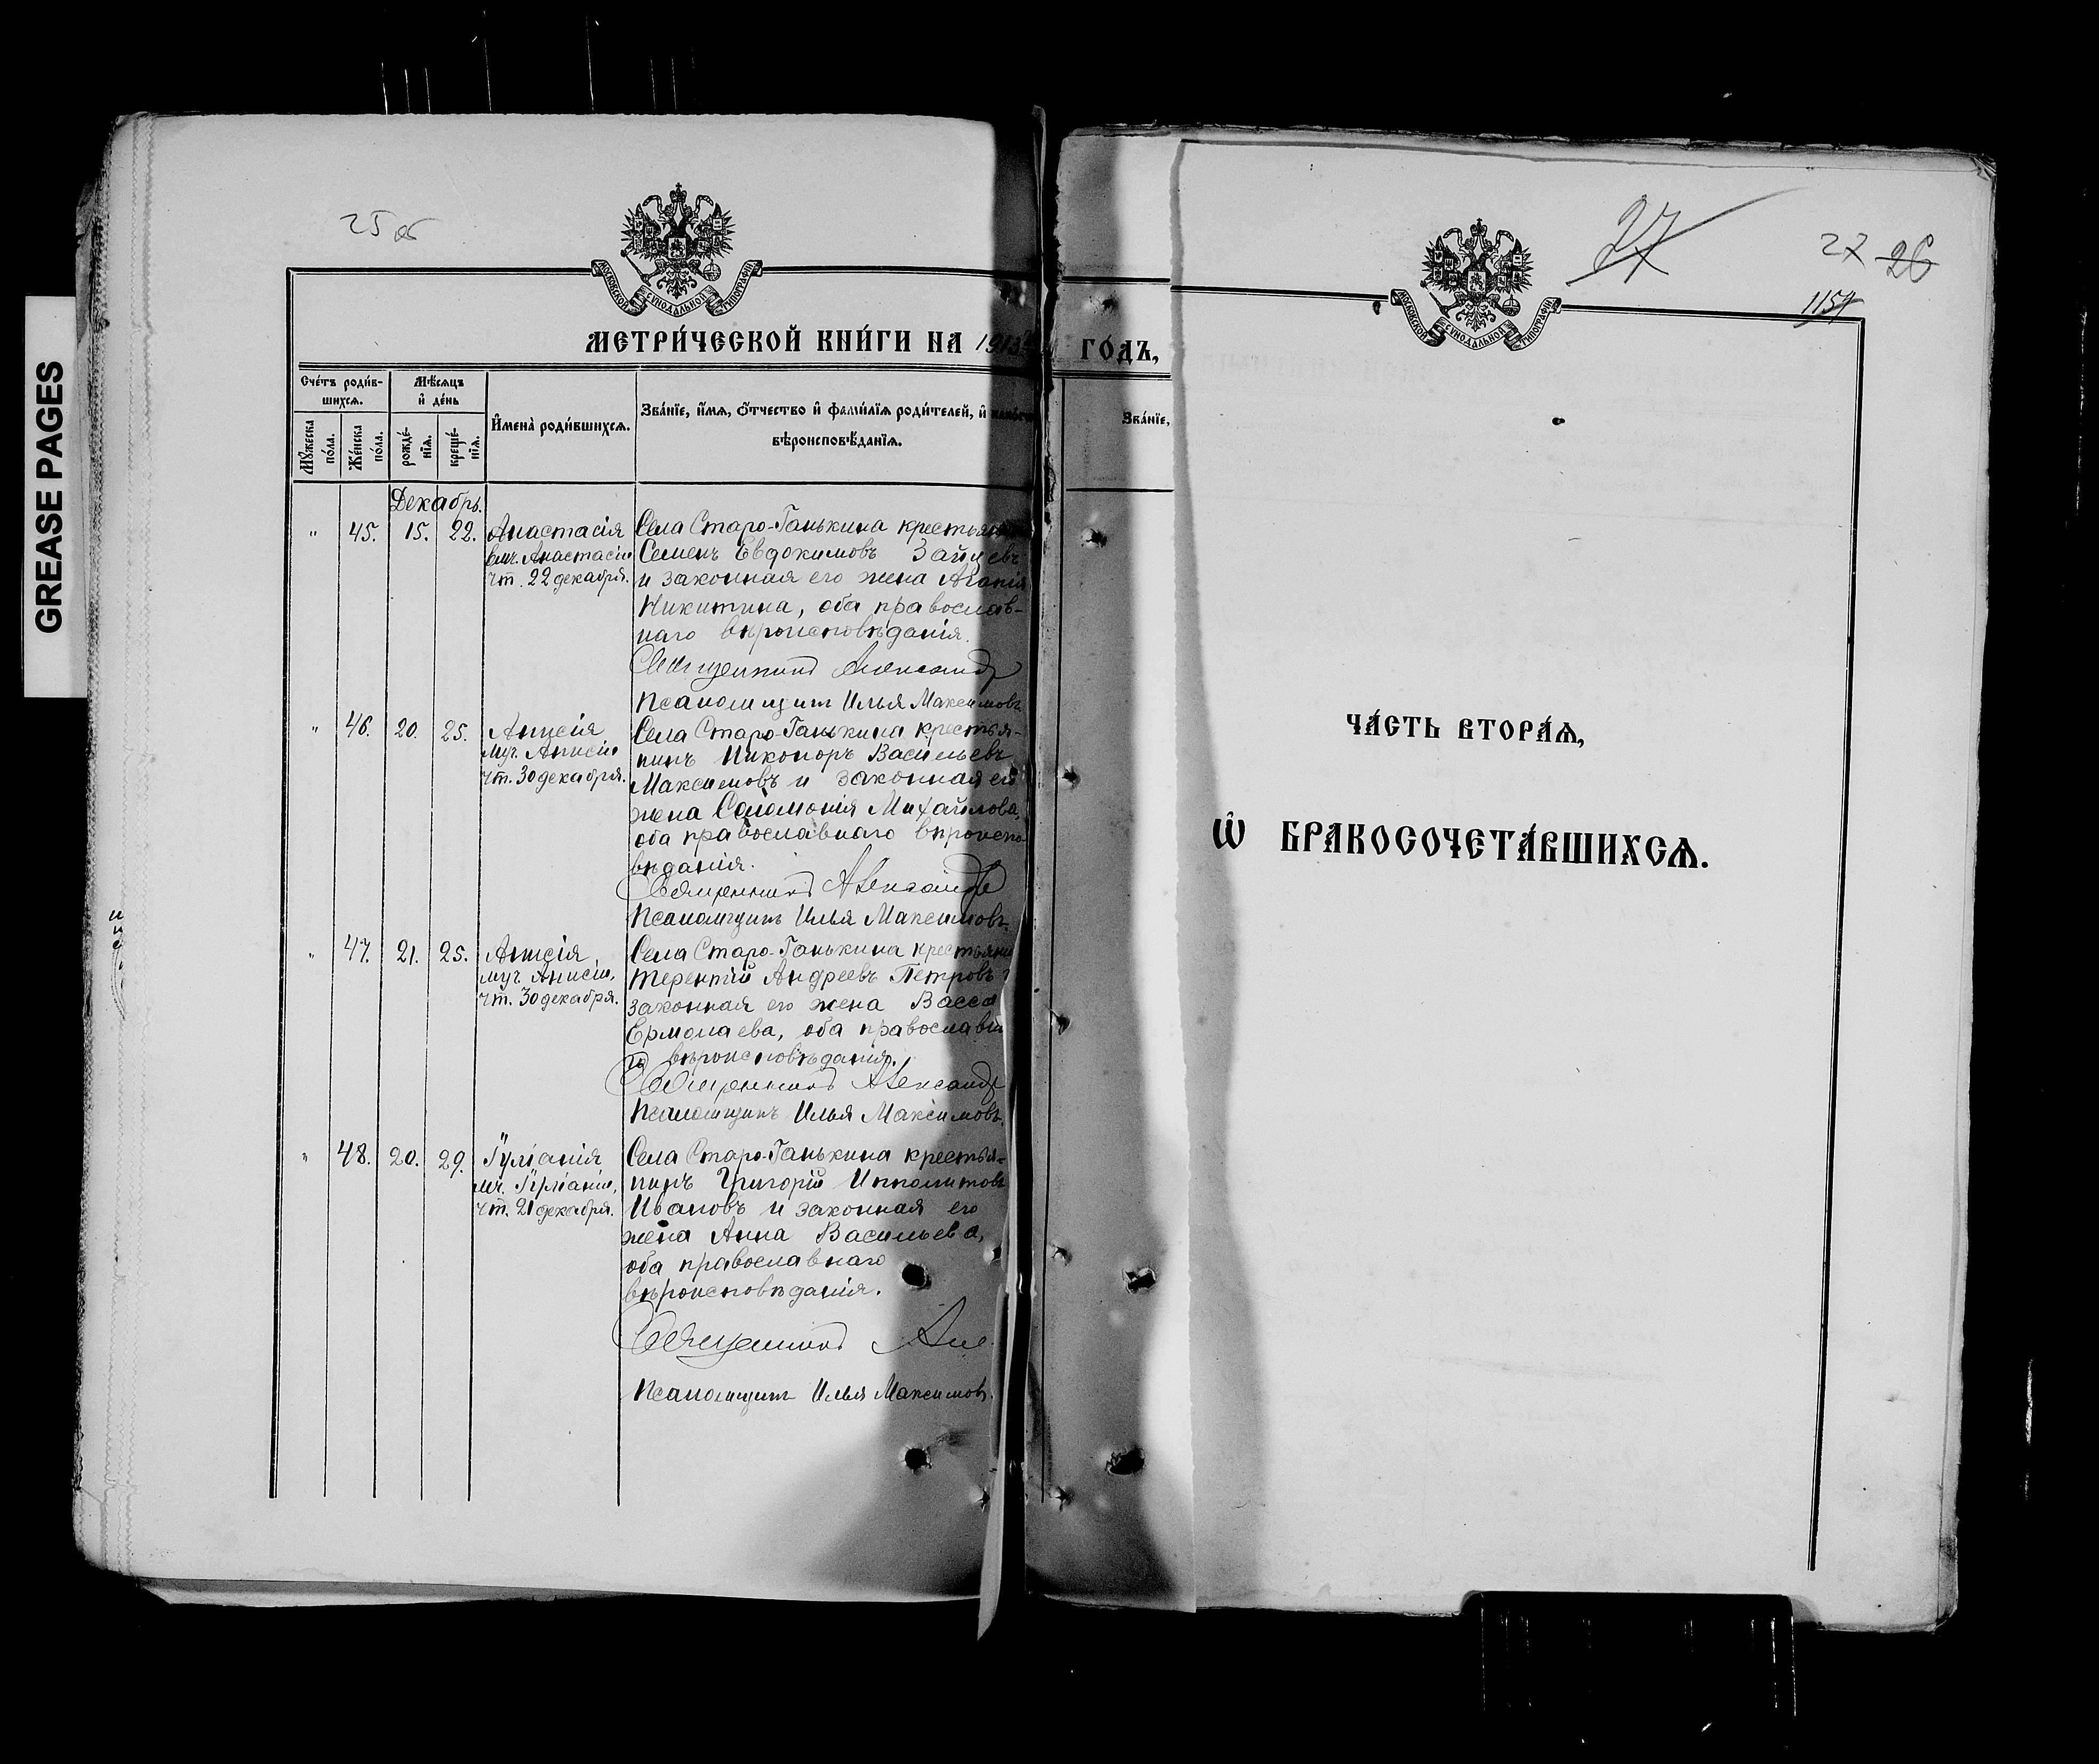 GREASE PAGES
25 об
МОСКОВСКОЙ СУНОДАЛЬНОЙ ТИПОГРАФІИ
МЕТРИ́ЧЕСКОЙ КНИ́ГИ НА 1913
Сче́тъ роди́в-
шихсѧ.
Мѣ́сѧцъ
и҆ де́нь
Мꙋ́жеска
по́ла.
Же́нска
по́ла.
рожде́-
нїѧ.
креще́-
нїѧ.
И҆мена̀ роди́вшихсѧ.
Зва́нїе, и҆́мѧ, ѻ҆́тчество и҆ фами́лїѧ роди́телей, и҆
вѣроисповѣ́данїѧ.
Декабрь.
" 45. 15. 22. Анастасія
вмч. Анастасіи
чт. 22 декабря.
Села Старо-Ганькина
Семенъ Евдокимовъ Зайцевъ
и законная его жена Агапія
Никитина, оба православ-
наго вѣроисповѣданія.
Священникъ Александр
Псаломщикъ Илья Максимовъ.
" 46. 20. 25. Анисія
муч. Анисіи
чт. 30 декабря.
Села Старо-Ганькина крестья-
нинъ Никоноръ Васильевъ
Максимовъ и законная его
жена Соломонія Михайлова,
оба православнаго вѣроиспо-
вѣданія.
Священникъ Александр
Псаломщикъ Илья Максимовъ.
" 47. 21. 25. Анисія
муч. Анисіи,
чт. 30 декабря.
Села Старо-Ганькина
Терентій Андреевъ Петровъ
законная его жена Васса
Ермолаева, оба православна
го вѣроисповѣданія.
Священникъ Александр
Псаломщикъ Илья Максимовъ.
" 48. 20. 29. Іуліанія
мч. Іуліаніи,
чт. 21 декабря.
Села Старо-Ганькина крестья-
нинъ Григорій Ипполитовъ
Ивановъ и законная его
жена Анна Васильева,
оба православнаго
вѣроисповѣданія.
Священникъ Але
Псаломщикъ Илья Максимовъ.
ГО́ДЪ,
Зва́нїе,
27
27 26
1154
МОСКОВСКОЙ СУНОДАЛЬНОЙ ТИПОГРАФІИ
ЧА́СТЬ ВТОРА́Ѧ,
Ѽ БРАКОСОЧЕТА́ВШИХСѦ.